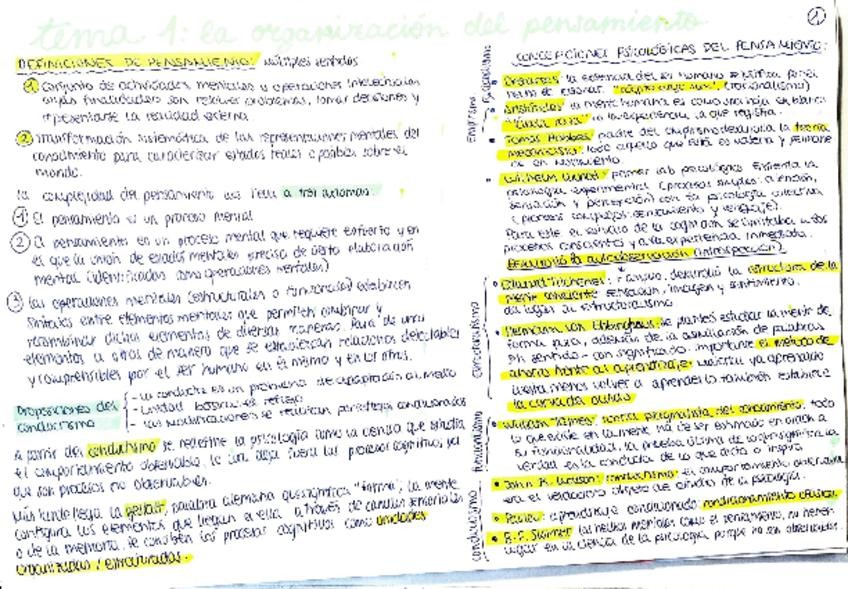 tema 1: la organización del pensamiento
1
DEFINICIONES DE PENSAMIENTO: múltiples sentidos
1 Conjunto de actividades mentales u operaciones intelectuales
cuyas finalidades son resolver problemas, tomar decisiones y
representarse la realidad externa.
2 Transformación sistemática de las representaciones mentales del
conocimiento para caracterizar estados reales o posibles sobre el
mundo.
la complejidad del pensamiento nos lleva a tres axiomas:
1 El pensamiento es un proceso mental
2 El pensamiento es un proceso mental que requiere esfuerzo y en
el que la unión de estados mentales precisa de cierta elaboración
mental (identificadas como operaciones mentales)
3 Las operaciones mentales (estructurales o funcionales) establecen
sintaxis entre elementos mentales que permiten combinar y
recombinar dichos elementos de diversas maneras. Para de unos
elementos a otros de manera que se establezcan relaciones detectables
y comprensibles por el ser humano en él mismo y en los otros.
Proposiciones del conductismo
- La conducta es un problema de adaptación al medio
- Unidad básica: el reflejo
- Las modificaciones se realizan por reflejos condicionados
A partir del conductismo se redefine la psicología como la ciencia que estudia
el comportamiento observable, le deja fuera los procesos cognitivos, ya
que son procesos no observables.
Más tarde llega la gestalt, palabra alemana que significa "forma"; la mente
configura los elementos que llegan a ella a través de canales sensoriales
o de la memoria. Se conciben los procesos cognitivos como unidades
organizadas / estructuradas.
CONCEPCIONES PSICOLÓGICAS DEL PENSAMIENTO:
racionalismo
empirismo
Descartes: la existencia del ser humano se justifica por el
hecho de razonar. (racionalismo)
Aristóteles: la mente humana es como una hoja en blanco
"tábula rasa" la experiencia la que registra.
Tomas Hobbes: padre del empirismo desarrolla la teoría
mecanicista: todo aquello que existe es materia y permanece
en movimiento.
Wilhelm Wundt: primer lab psicológico. Enfrenta la
psicología experimental (procesos simples: atención,
sensación y percepción) con la psicología colectiva
(procesos complejos: pensamiento y lenguaje).
Para este el estudio de la cognición se limitaba a los
procesos conscientes y a la experiencia inmediata.
Desarrolló la autoobservación (introspección).
estructuralismo
Edward Titchener: desarrolló la estructura de la
mente consciente sensación, imagen y sentimiento.
da lugar al estructuralismo
Hermann von Ebbinghaus: se planteó estudiar la mente de
forma pura, además de la asimilación de palabras
sin sentido - con significado. Importante el método de
ahorro frente al aprendizaje: material ya aprendido
cuesta menos volver a aprenderlo también establece
la curva del olvido
funcionalismo
William James: teoría pragmatista del conocimiento: todo
lo que existe en la mente ha de ser estimado en orden a
su funcionalidad, la prueba última de lo que significa la
verdad es la conducta de lo que dicta o inspira
conductismo
John B. Watson: conductismo. El comportamiento observable
era el verdadero objeto de estudio de la psicología.
Pavlov: aprendizaje condicionado condicionamiento clásico
B.F. Skinner: los hechos mentales como el pensamiento, no tienen
lugar en la ciencia de la psicología porque no son observables.